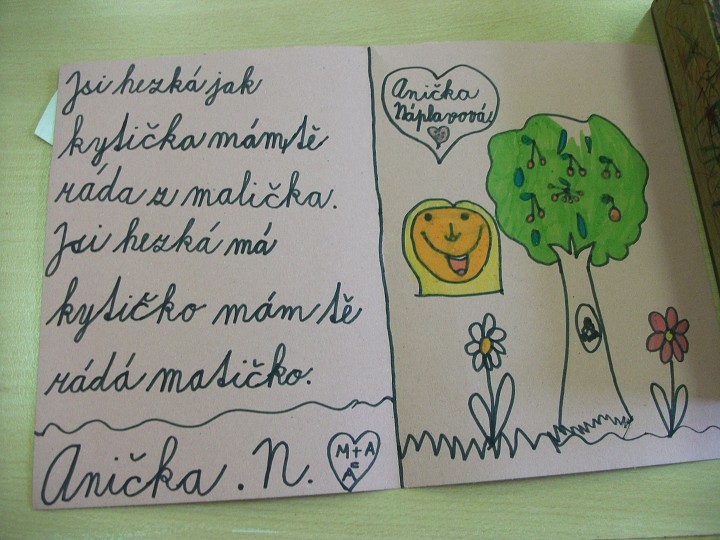 Jsi hezká jak
kytička mám tě
ráda z malička.
Jsi hezká má
kytičko mám tě
rádá matičko.
Anička. N.
M+A
=
A
Anička
Náplavová